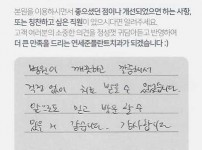 본원을 이용하시면서 좋으셨던 점이나 개선되었으면 하는 사항,
또는 칭찬하고 싶은 직원이 있으시다면 알려주세요.
고객 여러분의 소중한 의견을 정성껏 귀담아듣고 반영하여
더 큰 만족을 드리는 연세준플란트치과가 되겠습니다 :)
병원이 깨끗하고 깔끔해서
걱정 없이 치료 받을 수 있었습니다
앞으로도 믿고 방문 할 수
있을 거 같습니다. 감사합니다